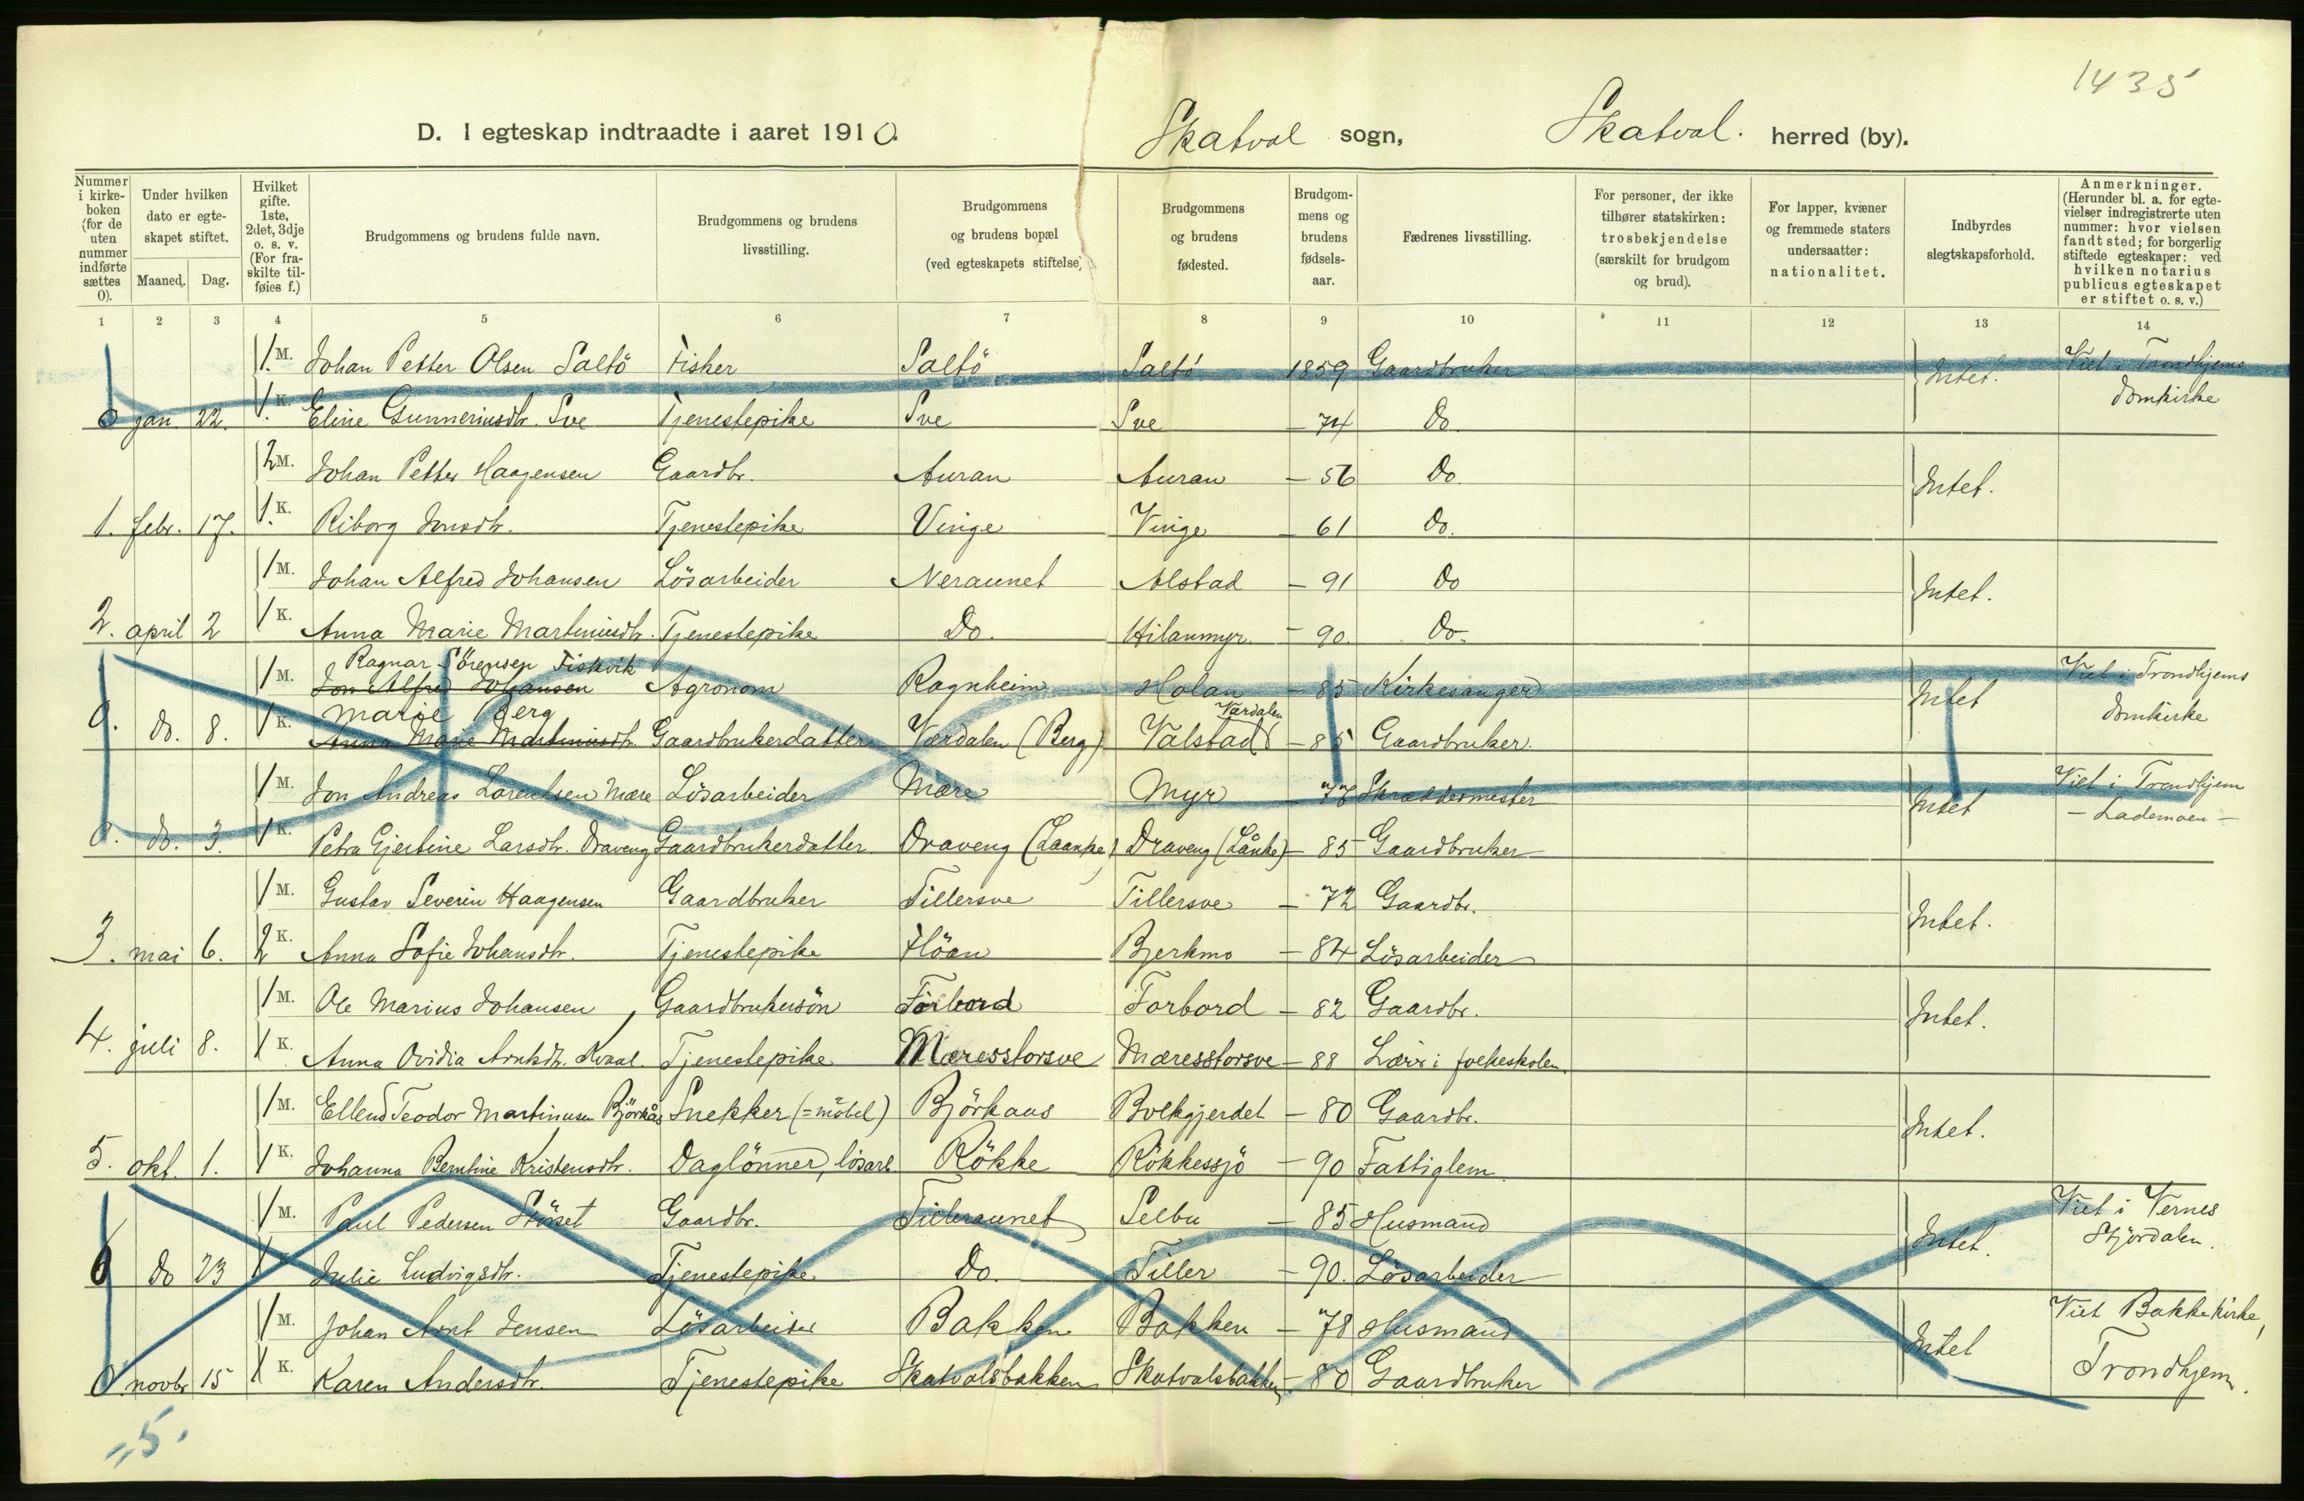 1435
D. I egteskap indtraadte i aaret 1910. Skatval sogn, Skatval. herred (by).
Nummer i kirkeboken (for de uten nummer indførte sættes 0).
Under hvilken dato er egteskapet stiftet.
Maaned. Dag.
Hvilket gifte. 1ste, 2det, 3dje o. s. v. (For fraskilte tilføies f.)
Brudgommens og brudens fulde navn.
Brudgommens og brudens livsstilling.
Brudgommens og brudens bopæl (ved egteskapets stiftelse)
Brudgommens og brudens fødested.
Brudgommens og brudens fødselsaar.
Fædrenes livsstilling.
For personer, der ikke tilhører statskirken: trosbekjendelse (særskilt for brudgom og brud).
For lapper, kvæner og fremmede staters undersaatter: nationalitet.
Indbyrdes slegtskapsforhold.
Anmerkninger. (Herunder bl. a. for egtevielser indregistrerte uten nummer: hvor vielsen fandt sted; for borgerlig stiftede egteskaper: ved hvilken notarius publicus egteskapet er stiftet o. s. v.)
1 2 3 4 5 6 7 8 9 10 11 12 13 14
1. M. Johan Petter Olsen Saltö Fisker Saltö Saltö 1859 Gaardbruker Intet. Viet i Trondhjems
0 jan. 22. 1. K. Eline Gunneriusdtr. Sve Tjenestepike Sve Sve – 74 Do. domkirke
2 M. Johan Petter Haagensen Gaardbr. Auran Auran – 56 Do. Intet.
1. febr. 17. 1. K. Riborg Jonsdtr. Tjenestepike Vinge Vinge – 61 Do.
1 M. Johan Alfred Johansen Lösarbeider Neraunet Alstad – 91 Do Intet.
2. april 2 1 K. Anna Marie Martinusdtr. Tjenestepike Do. Hilanmyr – 90. Do.
Ragnar Sörensen Fiskvik
1 M. Jon Alfred Johansen Agronom Ragnheim Holan – 85 Kirkesanger Intet Viet i Trondhjems
Marie Berg Værdalen
0. do. 8. 1 K. Anna Marie Martinusdtr. Gaardbrukerdatter Værdalen (Berg) Valstad – 85 Gaardbruker. domkirke
1 M. Jon Andreas Lorentsen Mære Lösarbeider Mære Myr – 78 Skræddermester Intet Viet i Trondhjem
0. do. 3. 1 K. Petra Gjertine Larsdtr. Draveng Gaardbrukerdatter Draveng (Laanke) Draveng (Lånke) – 85 Gaardbruker – Lademoen –
1 M. Gustav Severin Haagensen Gaardbruker Tillersve Tillersve – 72 Gaardbr. Intet.
3. mai 6. 2 K. Anna Sofie Johansdtr. Tjenestepike Flöan Bjerkmo – 84 Lösarbeider
1 M. Ole Marius Johansen Gaardbrukersön Forbord Forbord – 82 Gaardbr. Intet.
4. juli 8. 1 K. Anna Ovidia Arntsdtr. Kvaal. Tjenestepike Mæresstorsve Mæresstorsve – 88 Lærer i folkeskolen.
1 M. Ellend Teodor Martinusen Björkås Snekker (= möbel) Björkaas Bolkgjerdet – 80 Gaardbr. Intet.
5. okt. 1. 1 K. Johanna Berntine Kristensdtr. Daglönner, lösarb Rökke Rökkessjö – 90 Fattiglem.
1 M. Paul Pedersen Störset Gaardbr. Tilleraunet Selbu – 85 Husmand Intet. Viet i Vernes
0 Do 23 1 Julie Ludvigsdtr. Tjenestepike Do. Tiller – 90. Lösarbeider Stjördalen.
1 M. Johan Arnt Jensen Lösarbeider Bakken Bakken – 78 Husmand Intet Viet Bakke kirke,
0 novbr 15 1 K. Karen Andersdtr. Tjenestepike Skatvalsbakken Skatvalsbakken – 80 Gaardbruker Trondhjem.
= 5.